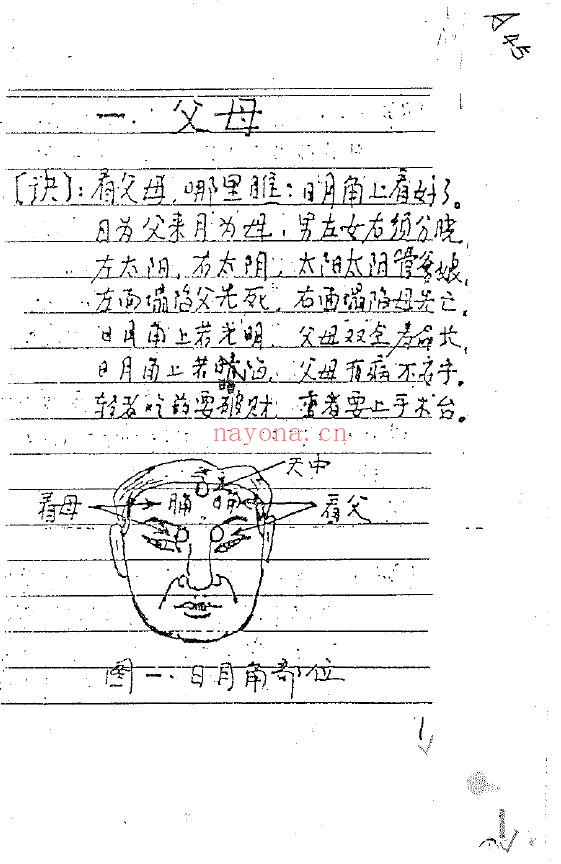 一. 父母
〔诀〕：看父母,哪里瞧：日月角上看好了。
日为父来月为母,男左女右须分晓,
左太阳,右太阴,太阳太阴管爹娘,
左面塌陷父先死,右面塌陷母先亡。
日月角上若光明,父母双全寿命长,
日月角上若暗晦,父母有病不
轻者吃药要破财,重者要上手术台。
nayona.cn
天中
看母
看父
图一.日月角部位
1